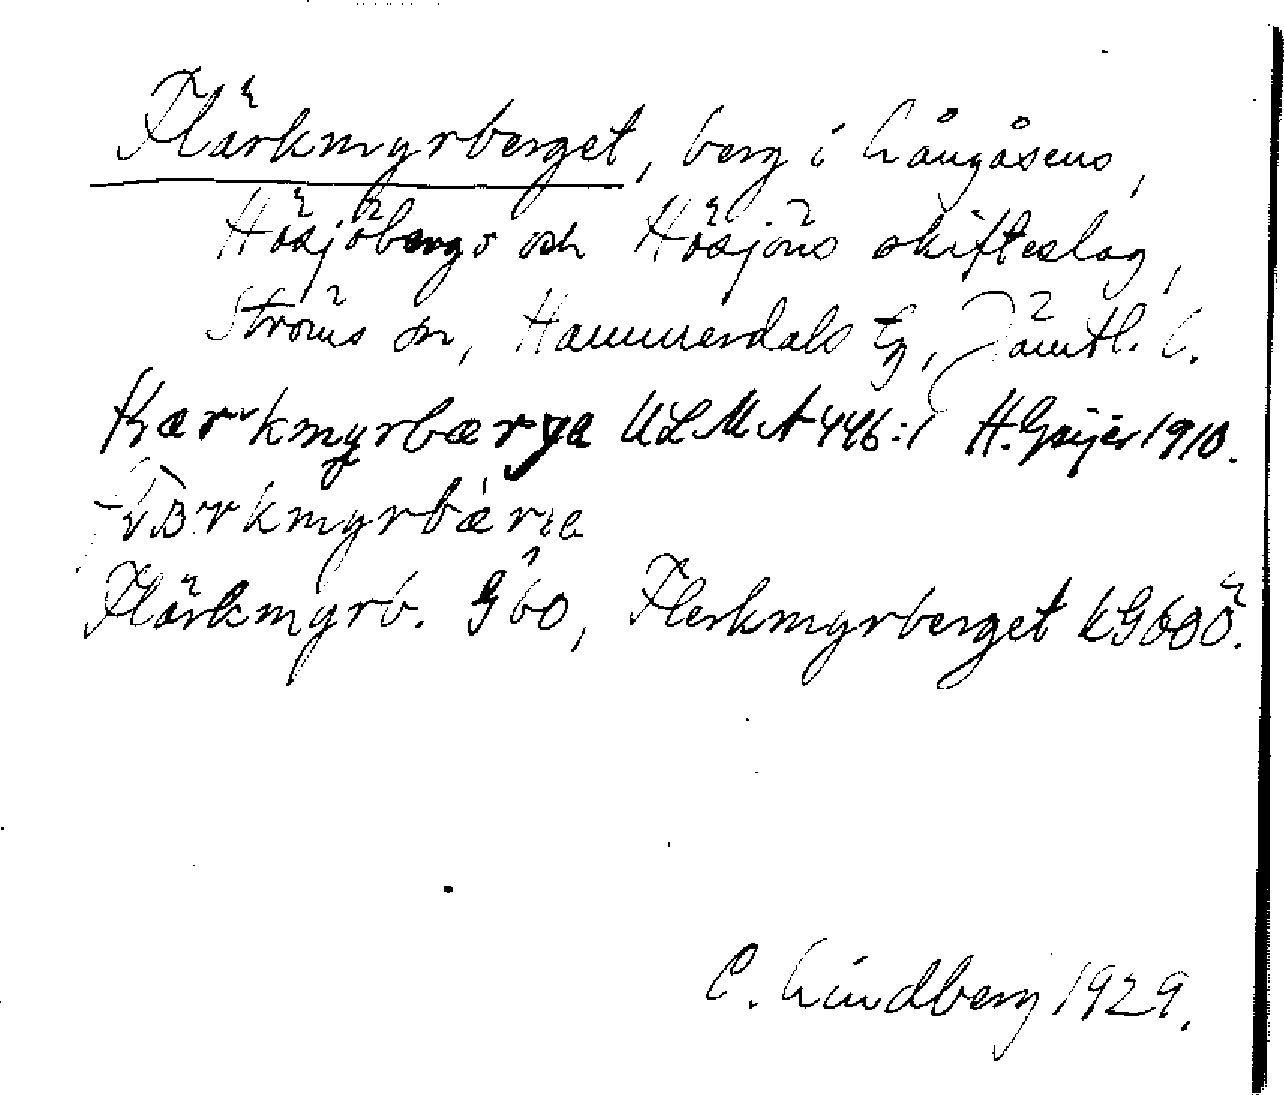 Flärkmyrberget, berg i Långåsens,
Hösjöbergs och Hösjöns skifteslag,
Ströms sn, Hammerdals tg, Jämtl. l.
ULMA 446:1 H. Geijer 1910.
Flärkmyrb. G 60, Flerkmyrberget KG 60 Ö.
C. Lindberg 1929.